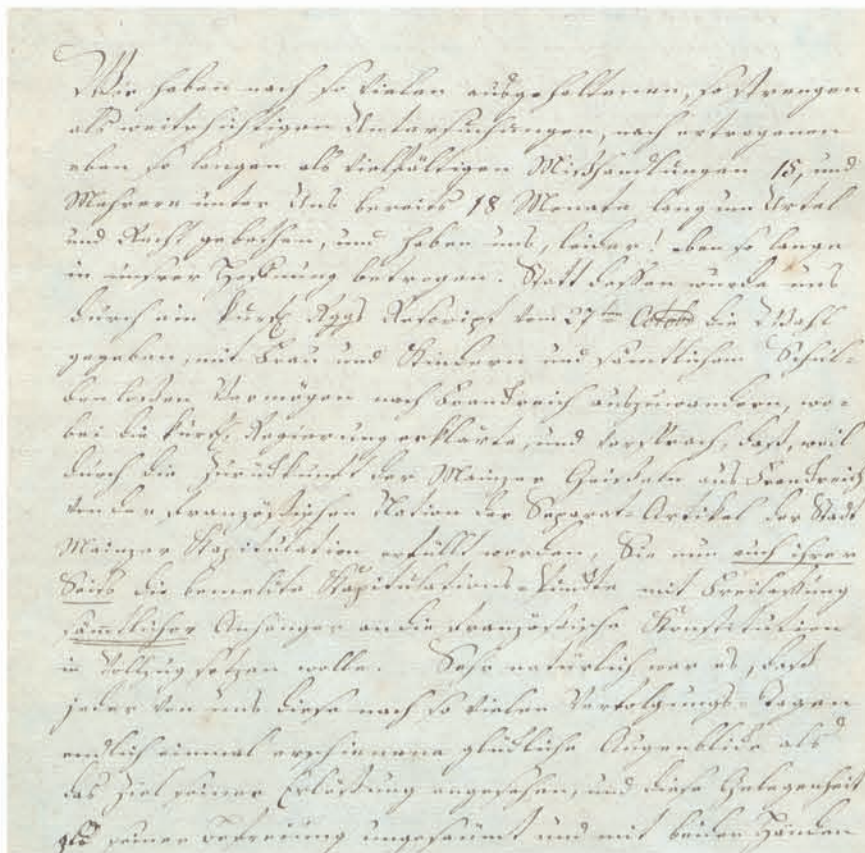 Wir haben nach so vielen ausgehaltenen, so strengen
als weitschichtigen Untersuchungen, nach ertragenen
eben so langen als vielfältigen Mißhandlungen 15, und
Mehrere unter Uns bereits 18 Monate lang um Urtel
und Recht gebethen, und haben uns, leider! eben so lange
in unsrer Hoffnung betrogen. Statt dessen wurde uns
durch ein kurf. Rggs Rescript vom 27ten die Wahl
gegeben, mit Frau und Kindern und sämtlichem Schul-
den losen Vermögen nach Frankreich auszuwandern, wo-
bei die kurf. Regierung erklärte, und versprach, daß, weil
durch die Zurückkunft der Mainzer Geißeln aus Frankreich
von der französischen Nation der Separat-Artikel der Stadt
Mainzer Kapitulation erfüllt worden, Sie nun auch ihrer
Seits die bemelte Kapitulations-Punkte mit Freilassung
sämmtlicher Anhänger an die französische Konstitution
in Vollzug setzen wolle. Sehr natürlich war es, daß
jeder von uns diese nach so vielen Verfolgungs-Tagen
endlich einmal erschienene glückliche Augenblicke als
das Ziel seiner Erlösung angesehen, und diese Gelegenheit
seiner Befreiung ungesäumt und mit beiden Händen